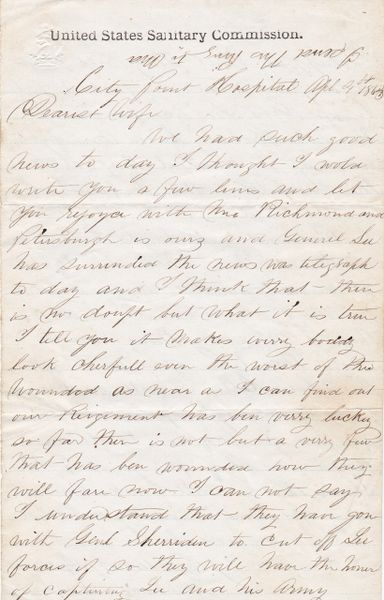 United States Sanitary Commission.
I send the Ring in this
City Point Hospital Apl 4th 1865
Dearest Wife
We had such good
news to day I thought I wold
write you a few lines and let
you rejoyce with me Richmond and
Petersburgh is ours and Generel Lee
has surrended the news was telegraph
to day and I think that there
is no doubt but what it is true
I tell you it makes evry boddy
look cherfull even the worst of the
wounded as near a I can find out
our Reigement has ben verry luckey
so far ther is not but a verry few
that has ben wounded how they
will fare now I can not say
I understand that they have gon
with Genl Sherriden to cut off Lee
forces if so they will have the honer
of captiring Lee and his Army